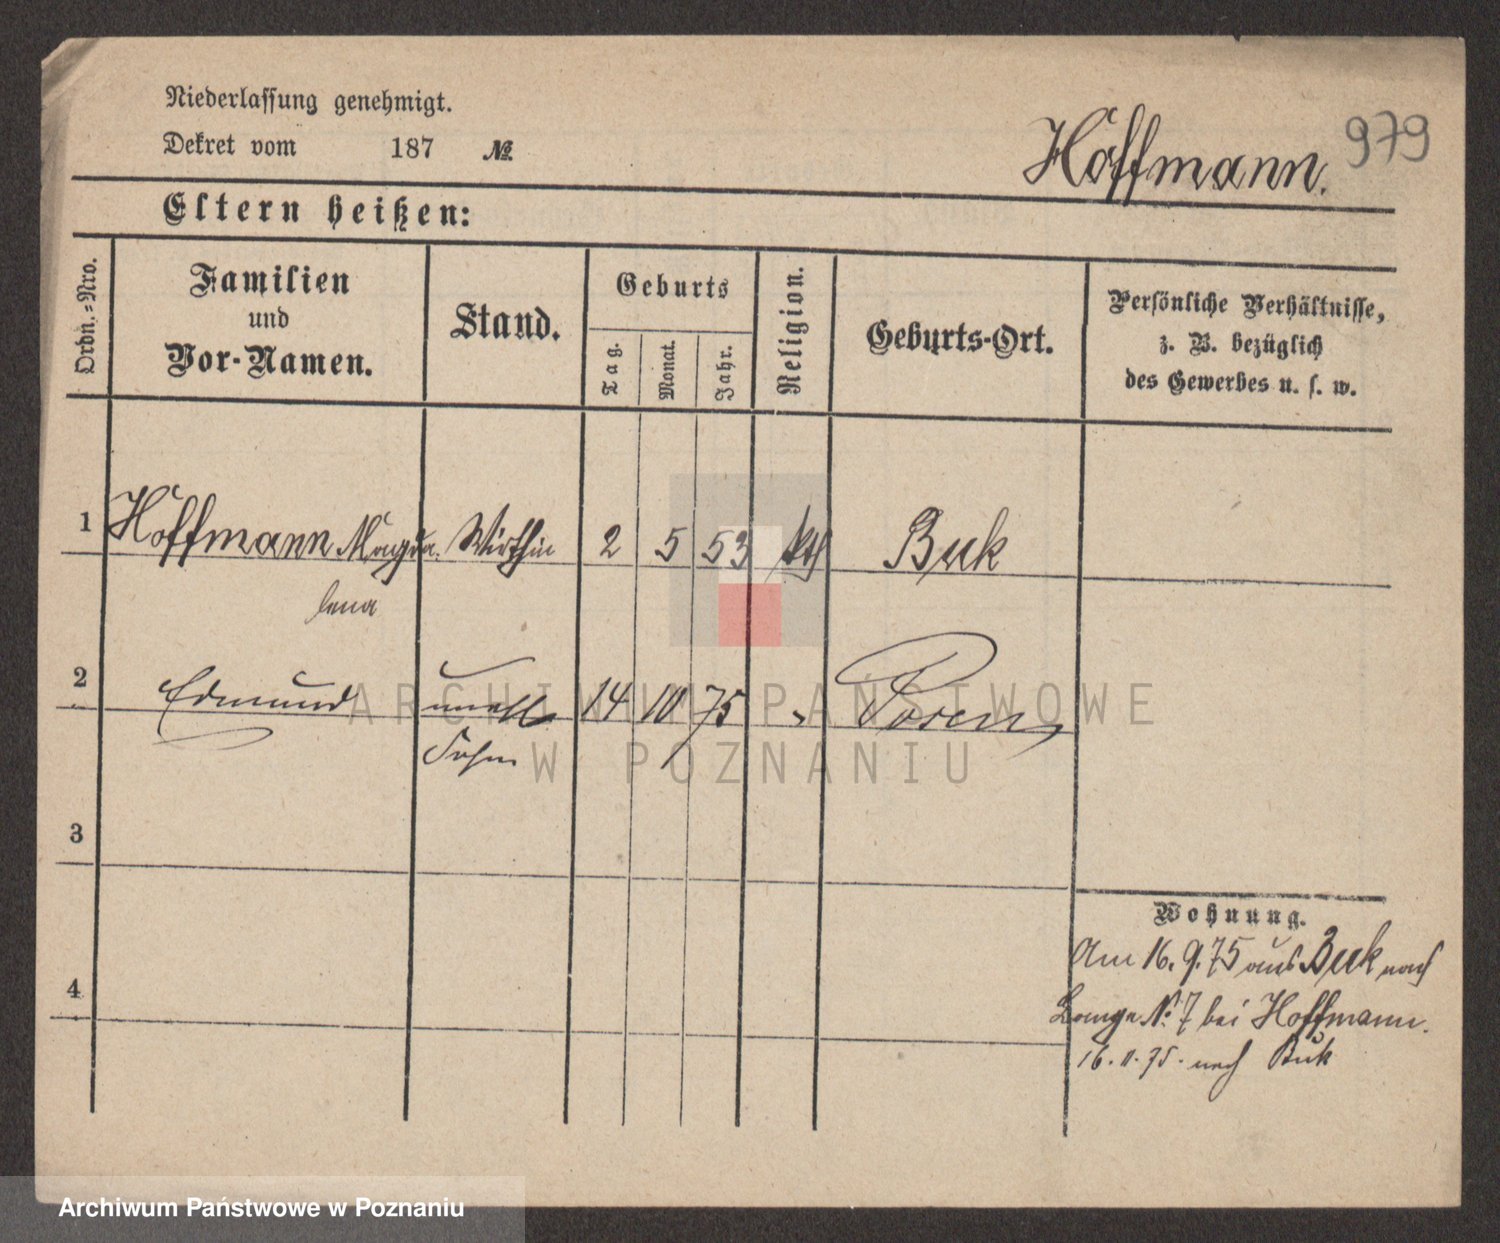 Niederlassung genehmigt.
Dekret vom 187 №
Hoffmann. 979
Eltern heißen:
Ordn.-Nro.
Familien
und
Vor-Namen.
Stand.
Geburts
Tag.
Monat.
Jahr.
Religion.
Geburts-Ort.
Persönliche Verhältnisse,
z. B. bezüglich
des Gewerbes u. s. w.
1 Hoffmann Magda Wirthin 2 5 53 kth Buk
lena
2 Edmund unehl 14 10 75 " Posen
Sohn
3
4
Wohnung.
Am 16. 9. 75 aus Buk nach
Lange No 7 bei Hoffmann.
16. 11. 75. nach Buk
ARCHIWUM PAŃSTWOWE
W POZNANIU
Archiwum Państwowe w Poznaniu